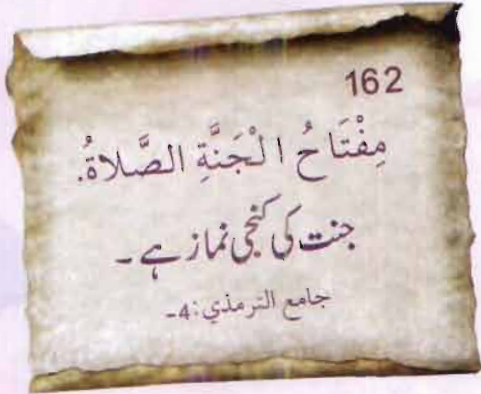 162
مِفْتَاحُ الْجَنَّةِ الصَّلاةُ.
جنت کی کنجی نماز ہے ۔
جامع الترمذي:4-